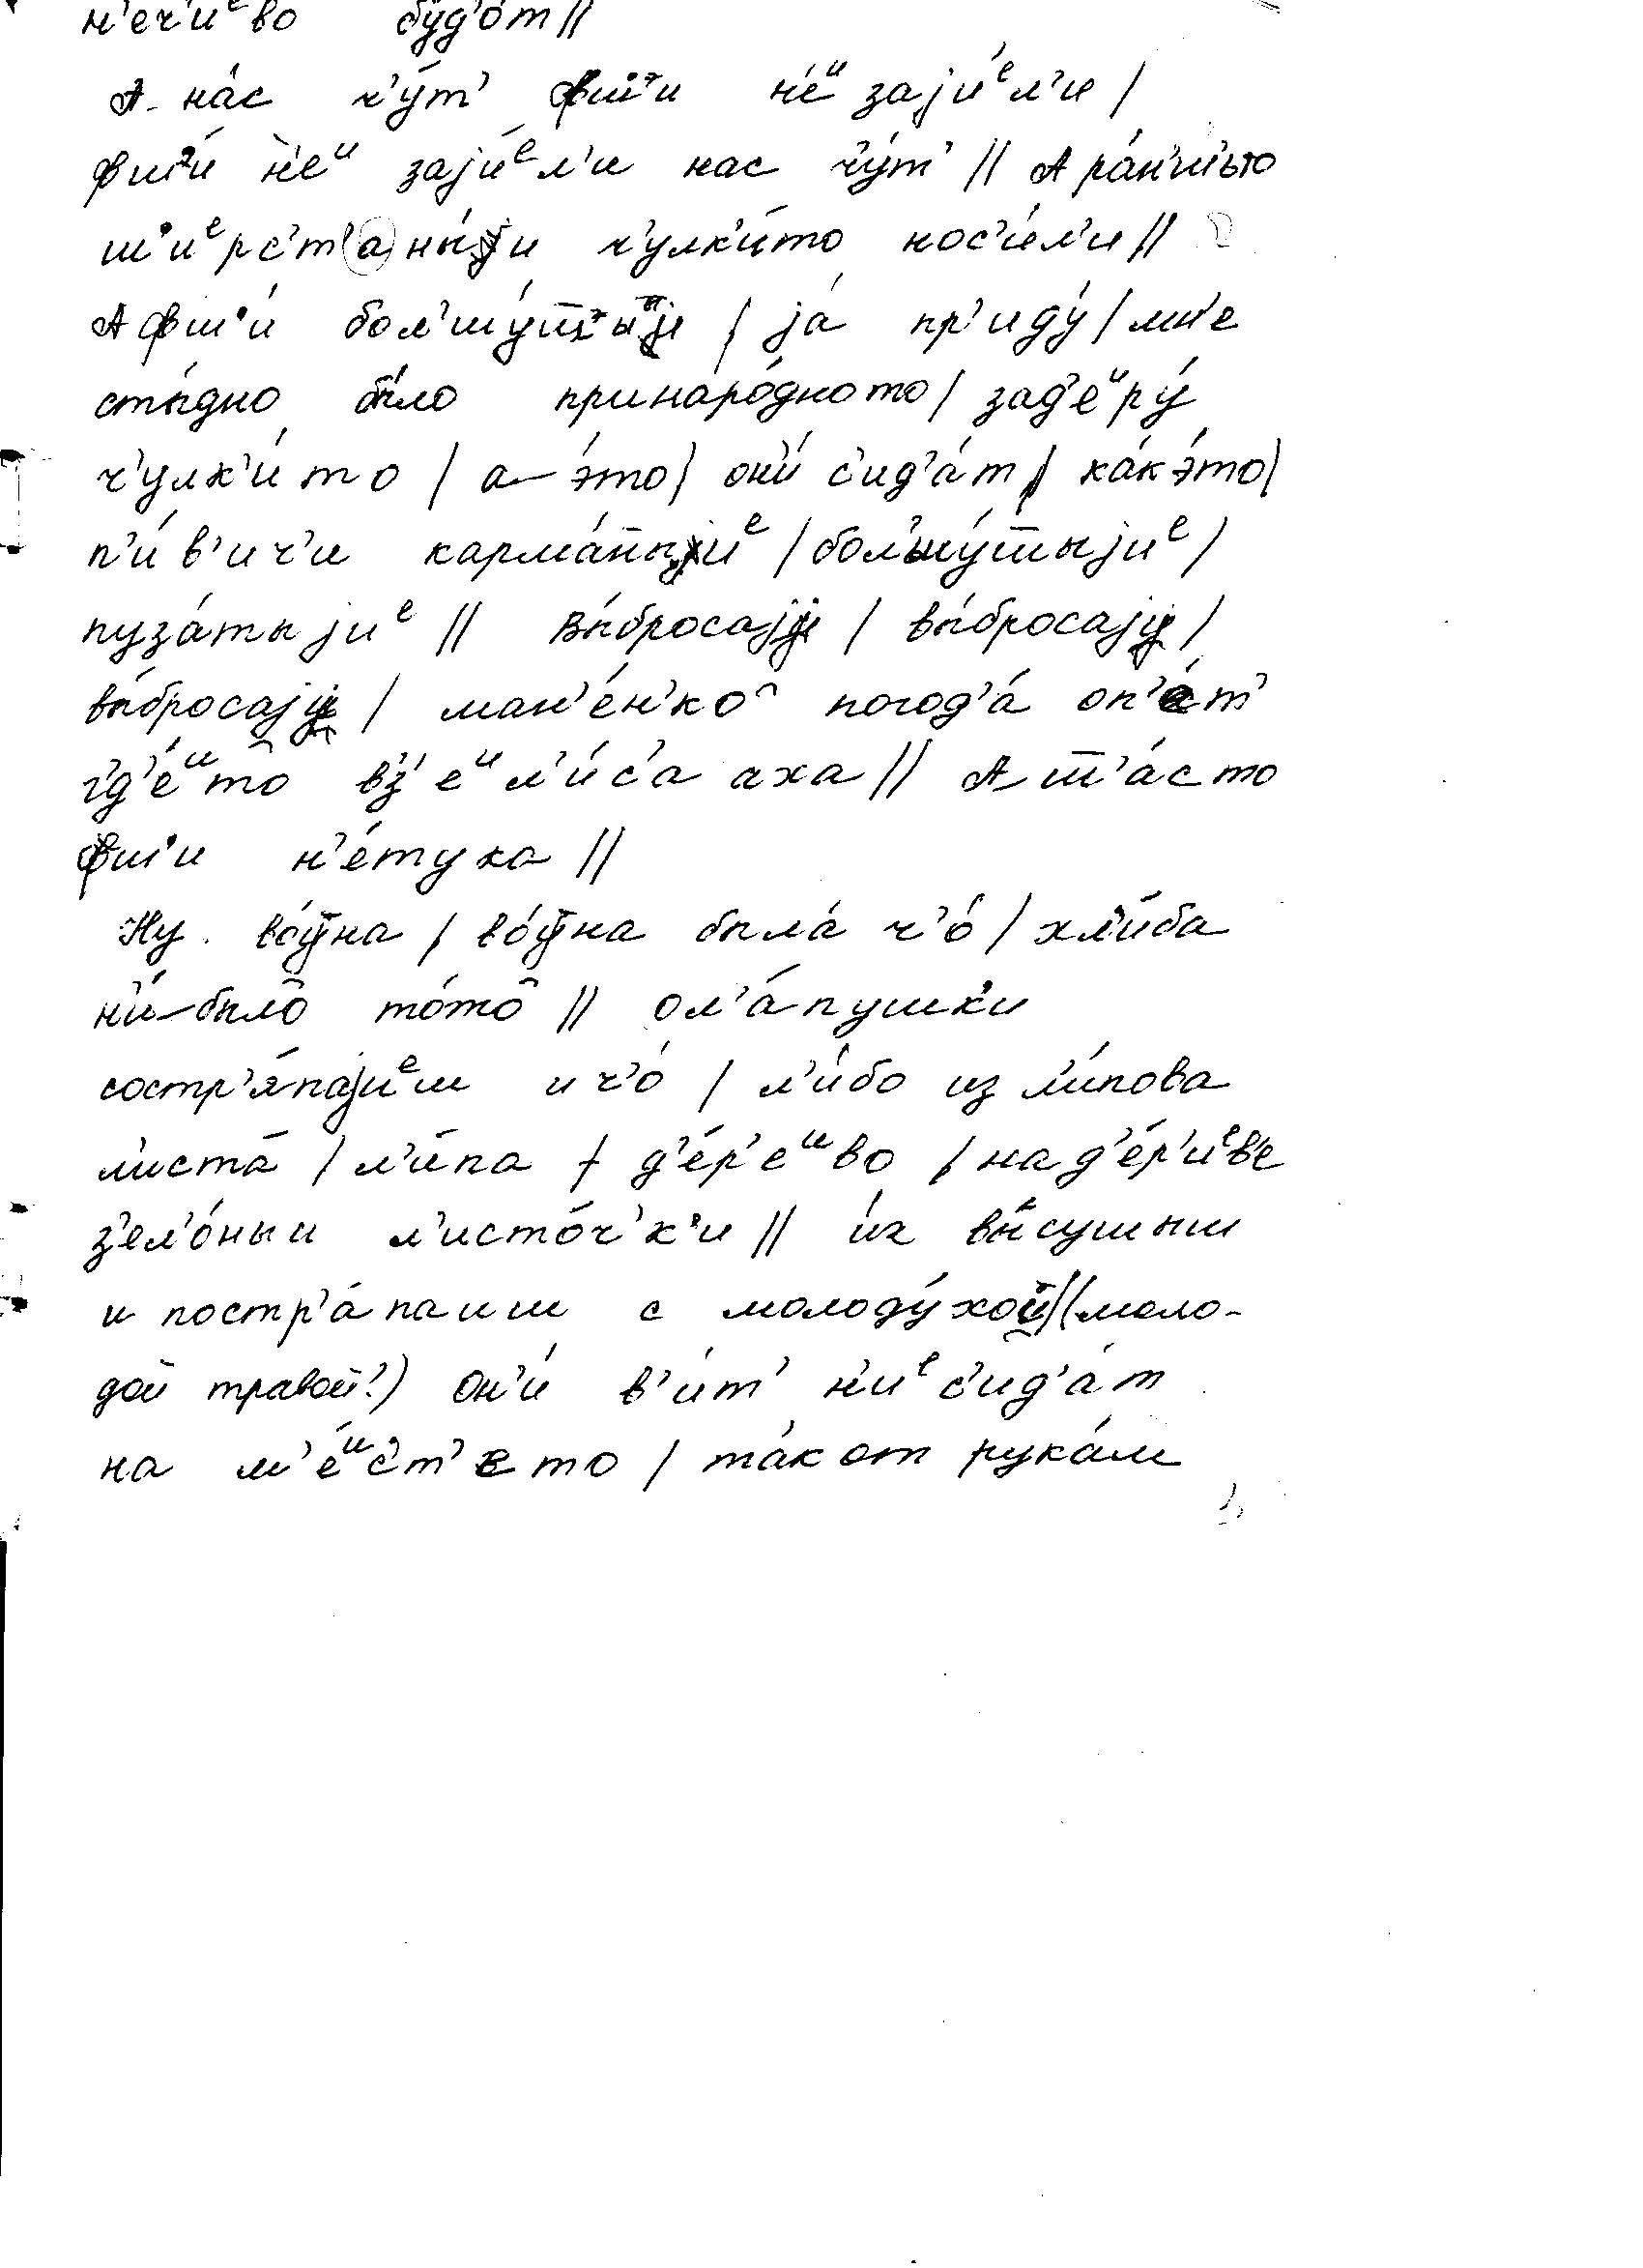 н'еч'иᵉво буд'о́т //
А на́с ч'у́т' фш'и н'еᶦ заjи́ᵉл'и /
фш'и́ н'еᶦ заjи́ᵉл'и нас ч'у́т' // А ра́н'ш'ыо
ш'иᵉрс'т'(а)ны́jи ч'улк'и́то нос'и́л'и //
А фш'и́ бол'шу́шыjе / jа́ пр'иду́ / мн'е
сты́дно бы́ло принаро́дното / зад'еᶦру́
ч'улк'и́то / а э́то / он'и́ с'ид'а́т / ка́к э́то /
п'и́в'ич'и карма́ныjиᵉ / бол'шу́шыjиᵉ /
пуза́тыjиᵉ // вы́бросаjу / вы́бросаjу /
вы́бросаjу / ман'е́н'ко погод'а́ оп'е́т'
гд'е́ᶦто вз'еᶦл'и́с'а аха // А т'а́сто
фш'и н'е́тука //
Ну во́йна / во́йна была́ ч'о́ / хл'и́ба
н'и́ было то́то // ол'а́пушк'и
состр'я́паjиᵉш и ч'о́ / л'и́бо из л'и́пова
л'иста́ / л'и́па / д'е́р'еᶦво / на д'е́р'иᵉв'е
з'ел'о́ныи л'исто́ч'к'и // и́х вы́сушыш
и постр'а́паиш с молоду́хой // (моло-
дой травой?) он'и́ в'и́т' н'иᵉ с'ид'а́т
на м'е́ᶦс'т'ето / та́к от рука́м